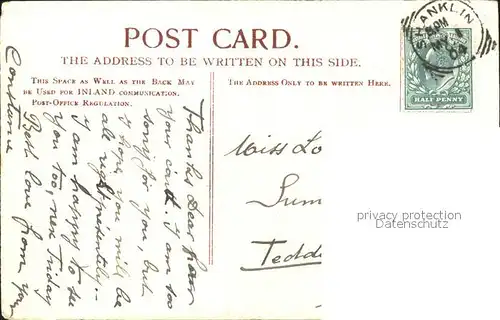 POST CARD.
THE ADDRESS TO BE WRITTEN ON THIS SIDE.
THIS SPACE AS WELL AS THE BACK MAY
BE USED FOR INLAND COMMUNICATION.
POST-OFFICE REGULATION.
THE ADDRESS ONLY TO BE WRITTEN HERE.
SHANKLIN
HALF PENNY
Thanks dear
your card. I am too
sorry for you, but
I hope you will be
all right presently:-
I am happy to see
you too, next Friday
Best love from you
Constance
Miss Lo
Sum
Tedd
privacy protection
Datenschutz